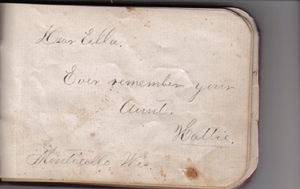 Dear Ella.
Ever remember your
Aunt.
Hattie.
Monticello, Wis.